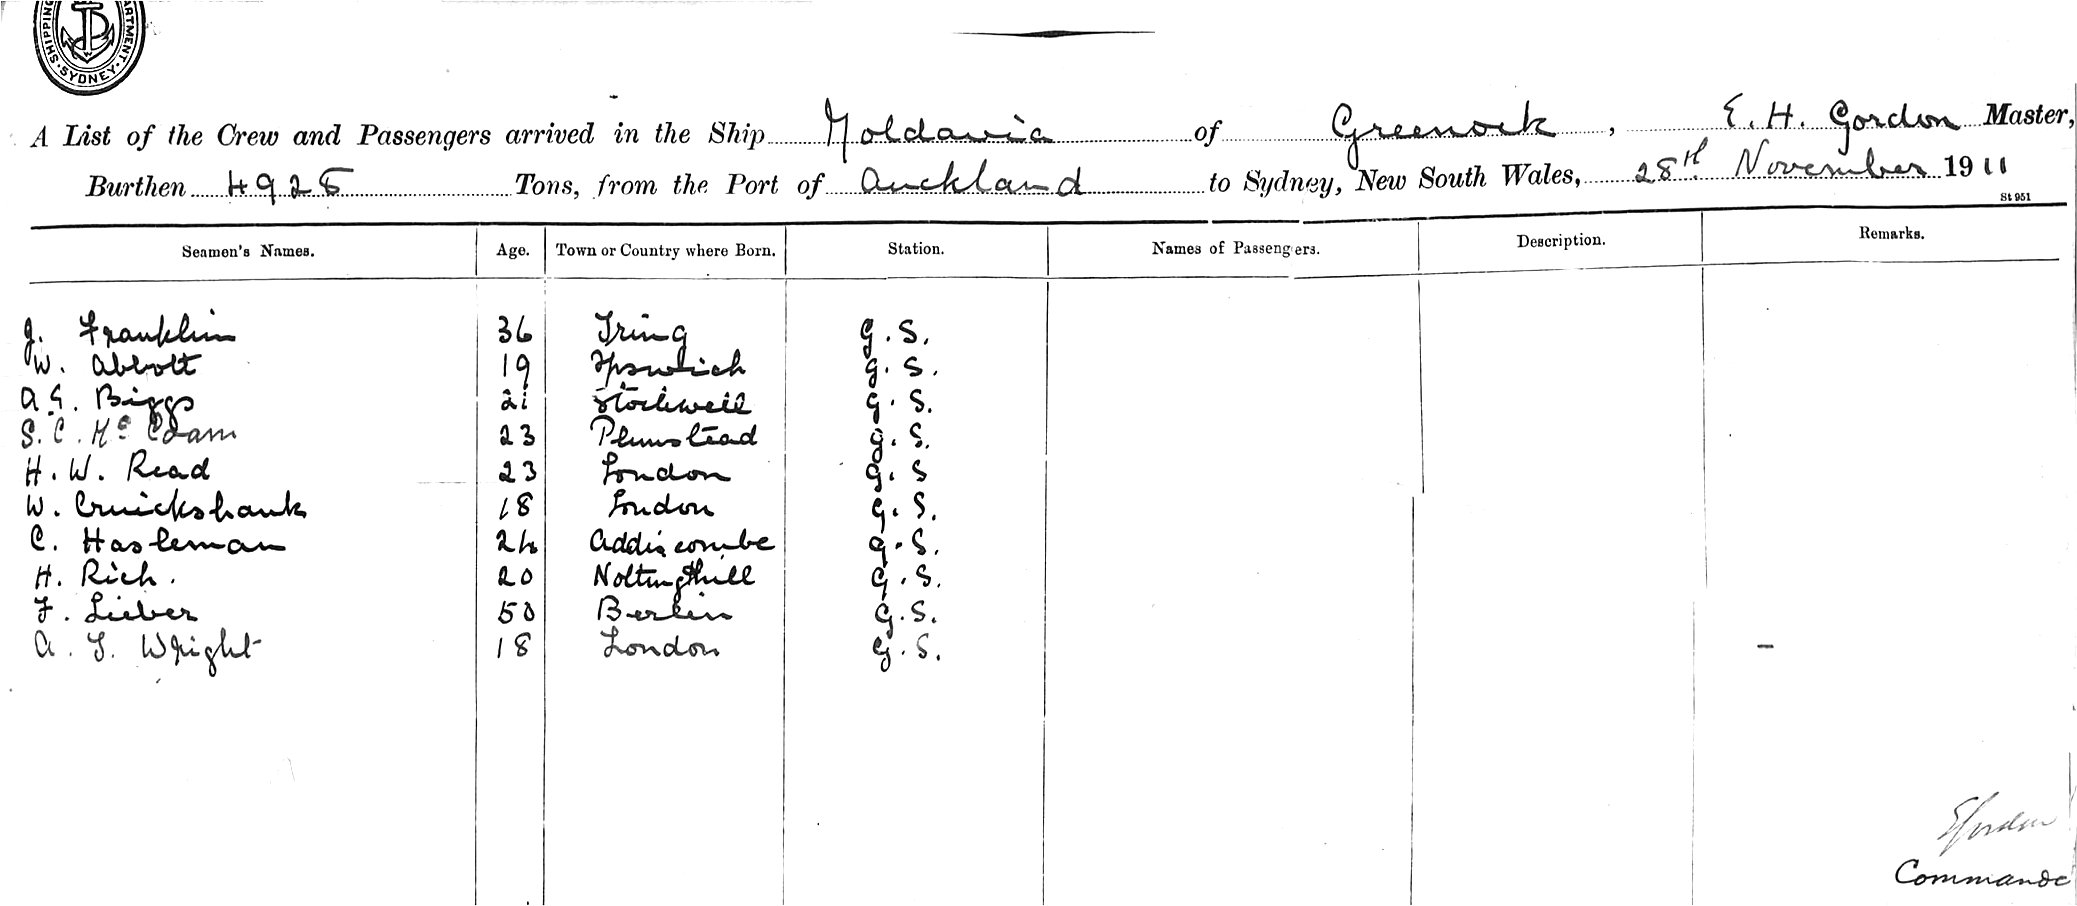 SHIPPING DEPARTMENT · SYDNEY ·
A List of the Crew and Passengers arrived in the Ship Moldavia of Greenock, E. H. Gordon Master,
Burthen 4928 Tons, from the Port of Auckland to Sydney, New South Wales, 28th November 1911
St 951
Seamen's Names. Age. Town or Country where Born. Station. Names of Passengers. Description. Remarks.
J. Franklin 36 Tring G. S.
W. Abbott 19 Ipswich G. S.
A. G. Biggs 21 Stockwell G. S.
S. C. Mc 23 Plumstead G. S.
H. W. Read 23 London G. S
W. Cruickshank 18 London G. S.
C. Hasleman 24 Addiscombe G. S.
H. Rich. 20 Nottinghill G. S.
F. Lieber 50 Berlin G. S.
A. Wright 18 London G. S. –
EGordon
Commande